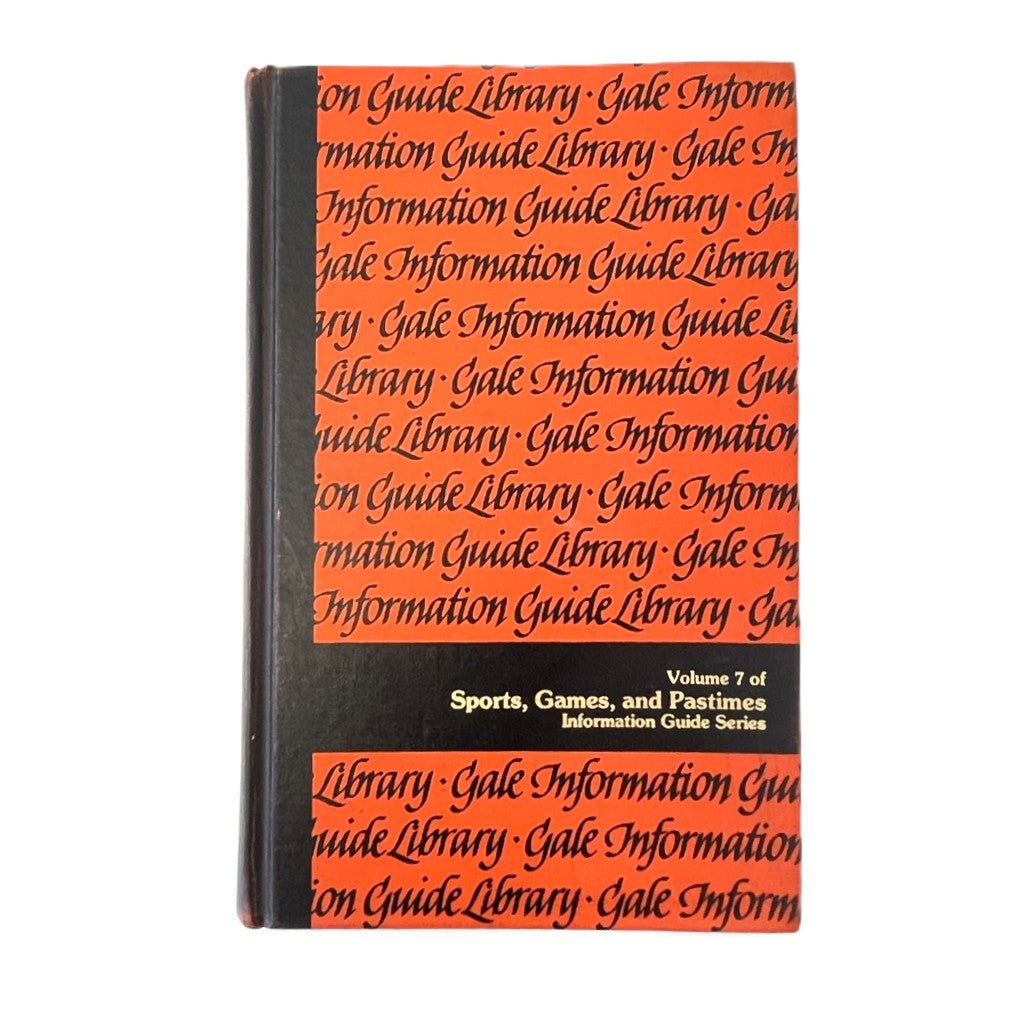 ion Guide Library · Gale Inform
rmation Guide Library · Gale In
Information Guide Library · Ga
Gale Information Guide Library
ary · Gale Information Guide Li
Library · Gale Information Gui
uide Library · Gale Information
ion Guide Library · Gale Inform
rmation Guide Library · Gale In
Information Guide Library · Ga
Volume 7 of
Sports, Games, and Pastimes
Information Guide Series
Library · Gale Information Gui
uide Library · Gale Information
ion Guide Library · Gale Inform